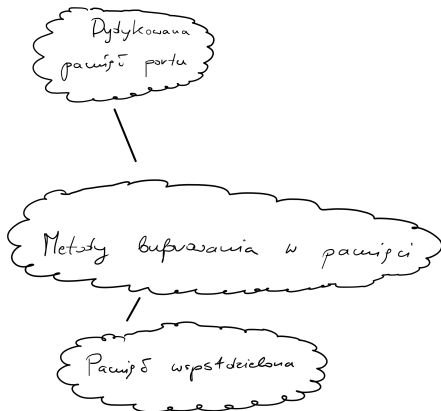 Dydykowana
pamięć portu
Metody buforowania w pamięci
Pamięć współdzielona